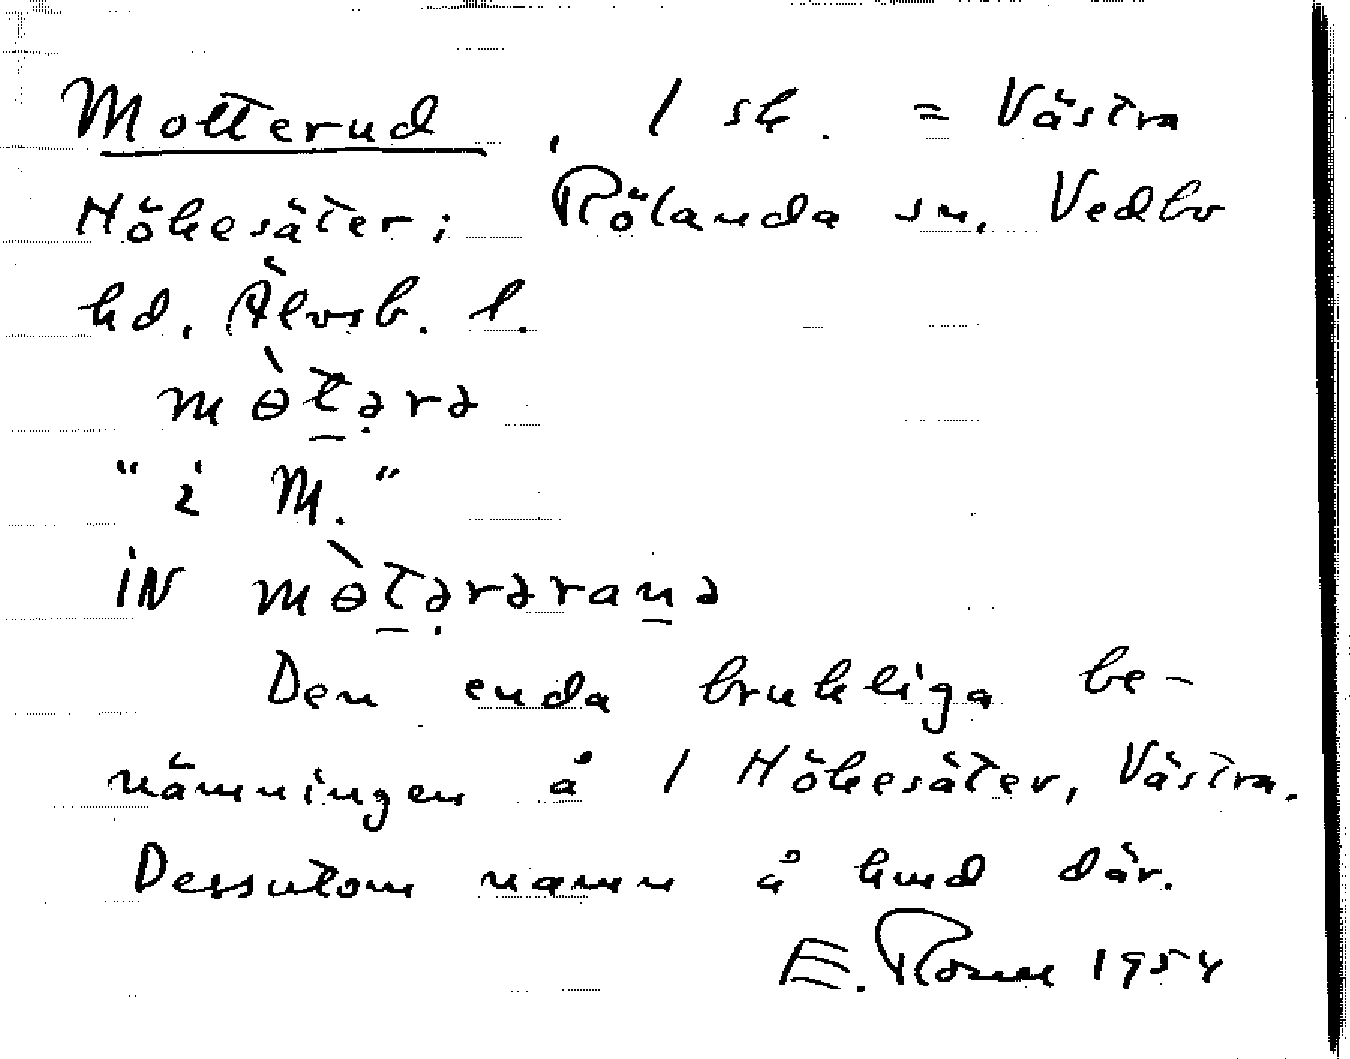 Motterud, 1 sk. = Västra
Hökesäter; Rölanda sn, Vedbo
hd. Älvsb. l.
mɵ̀t̠ə̣rə
"i M."
iN mɵ̀t̠ə̣rəran̠ə
Den enda brukliga be-
nämningen å 1 Hökesäter, Västra.
Dessutom namn å hmd där.
E. Rosell 1954